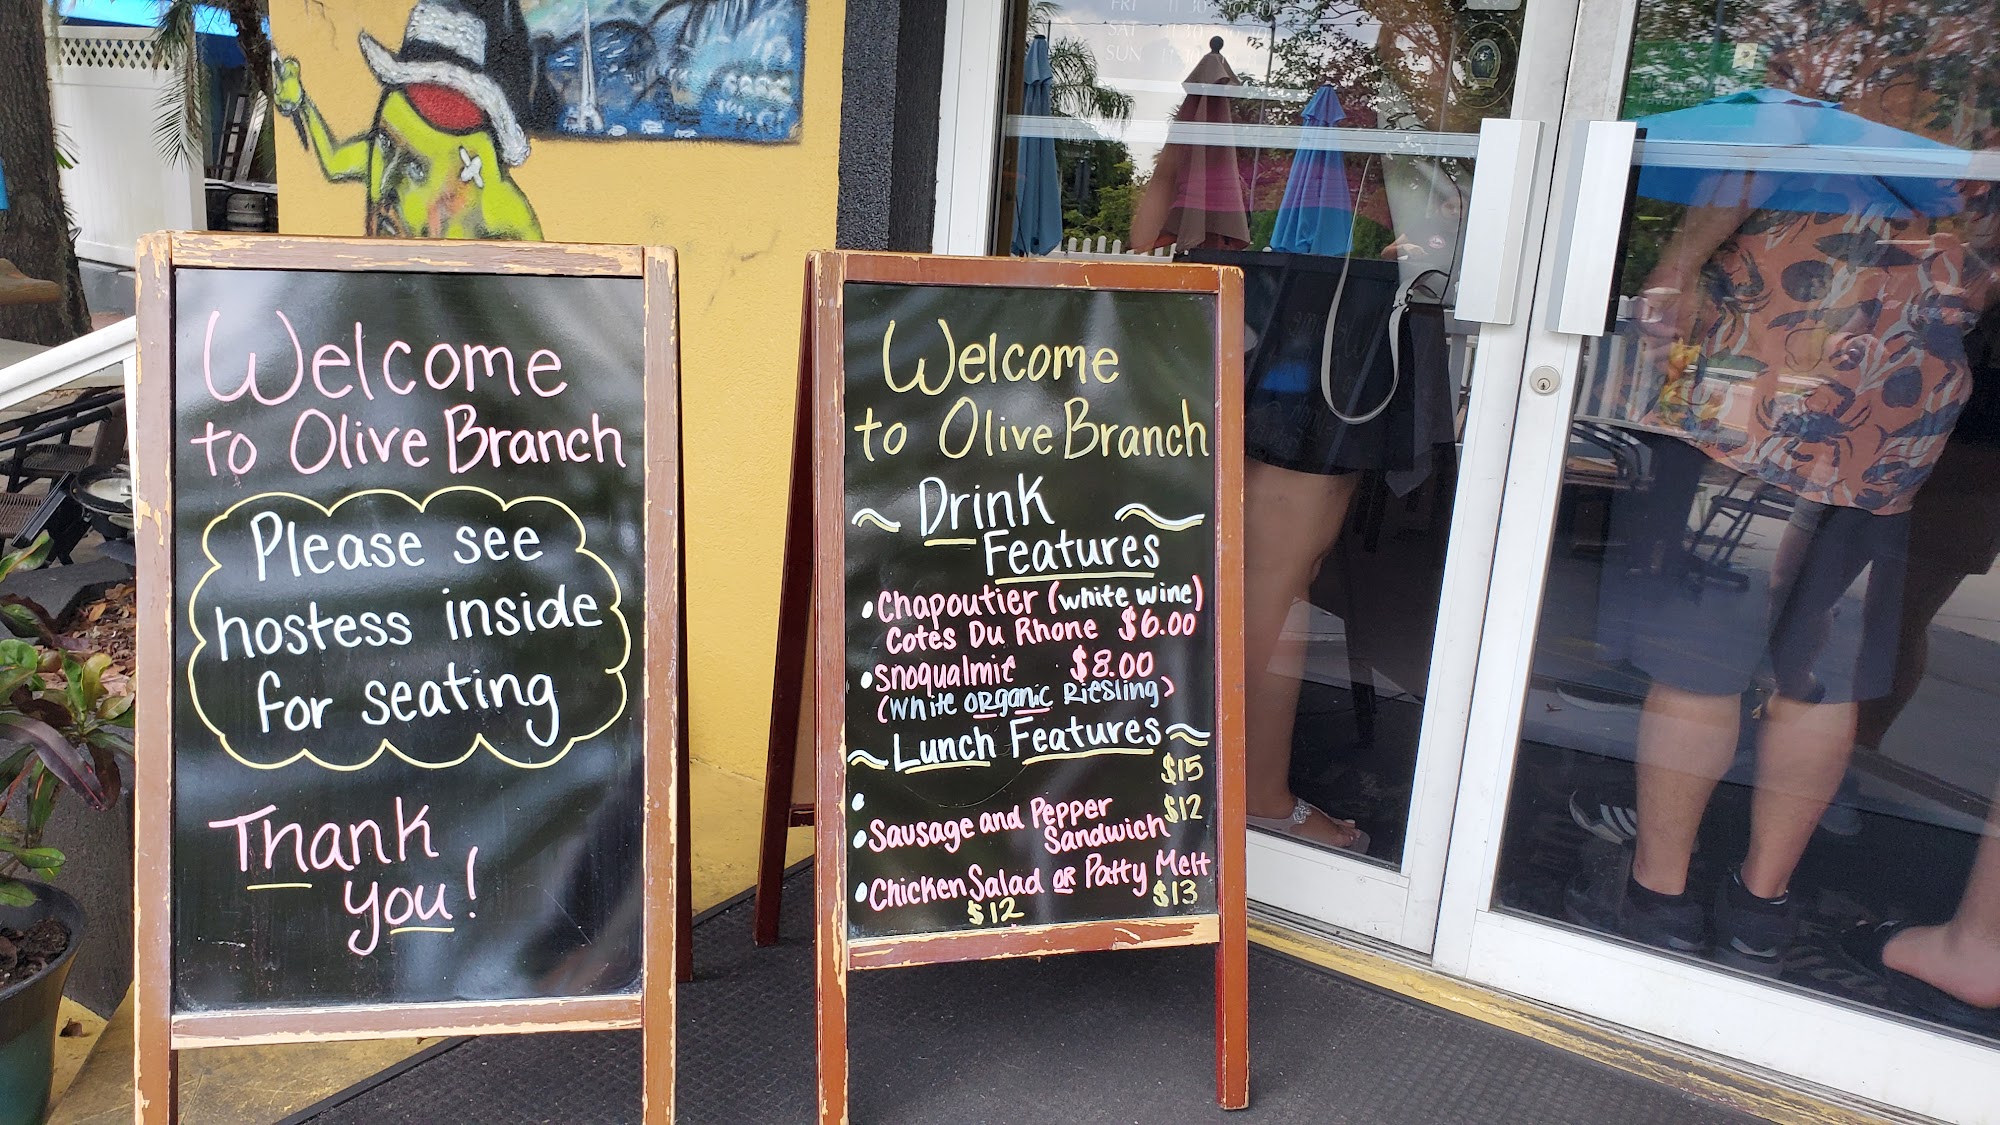 Welcome
to Olive Branch
Please see
hostess inside
for seating
Thank
you!
Welcome
to Olive Branch
Drink
Features
• Chapoutier (white wine)
Cotes Du Rhone $6.00
• Snoqualmie $8.00
(White ORganic Riesling)
Lunch Features
• $15
• Sausage and Pepper
Sandwich $12
• Chicken Salad OR Patty Melt
$12 $13
FRI
SAT
SUN